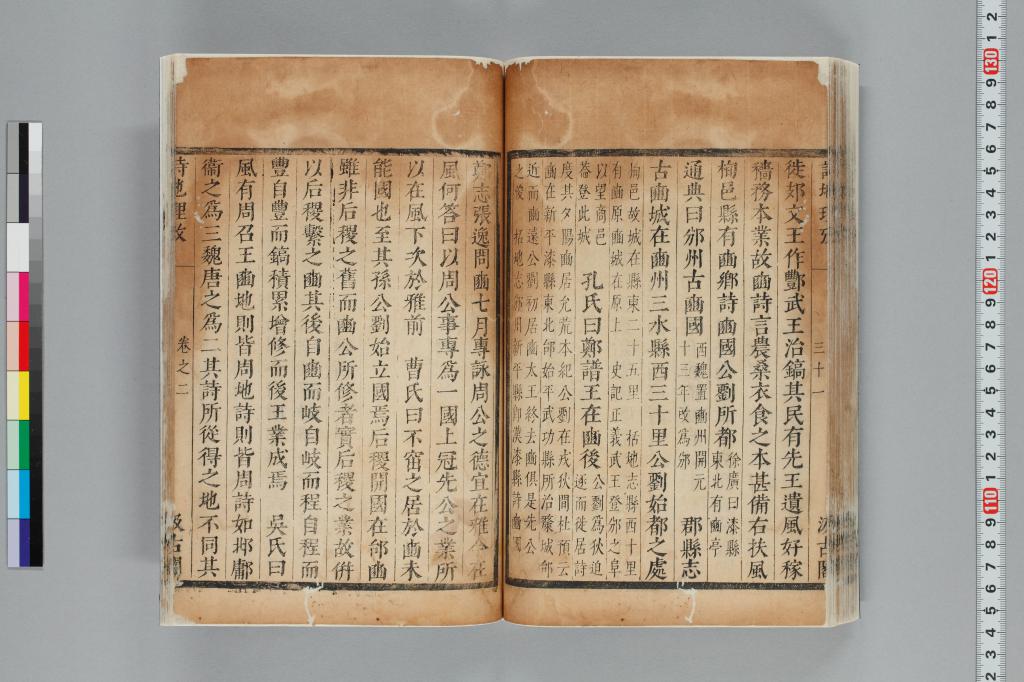 徙郊文王作酆武王治鎬其民有先王遺風好稼
穡務本業故豳詩言農桑衣食之本甚備右扶風
栒邑縣有豳鄉詩豳國公劉所都徐廣曰漆縣
東北有豳亭
通典曰邠州古豳國西魏置豳州開元
十三年改為邠 郡縣志
古豳城在豳州三水縣西三十里公劉始都之處
栒邑故城在縣東二十五里 括地志縣西十里
有豳原豳城在原上 史記正義武王登邠之阜
以望商邑
蓋登此城 孔氏曰鄭譜王在豳後公劉為狄迫
逐而徙居詩
度其夕陽豳居允荒本紀公劉在戎狄間杜預云
豳在新平漆縣東北邰始平武功縣所治釐城邰
近而豳遠公劉初居豳太王終去豳俱是先公
之 括地志 州新平縣即漢漆縣詩豳國
三十一
鄭志張逸問豳七月專詠周公之德宜在雅今在
風何答曰以周公事專為一國上冠先公之業所
以在風下次於雅前 曹氏曰不窋之居於豳未
能國也至其孫公劉始立國焉后稷開國在邰豳
雖非后稷之舊而豳公所修者實后稷之業故併
以后稷繫之豳其後自豳而岐自岐而程自程而
豐自豐而鎬積累增修而後王業成焉 吳氏曰
風有周召王豳地則皆周地詩則皆周詩如邶鄘
衞之為三魏唐之為二其詩所從得之地不同其
詩地理攷 卷之二 汲古閣
2 1 130 9 8 7 6 5 4 3 2 1 120 9 8 7 6 5 4 3 2 1 110 9 8 7 6 5 4 3 2